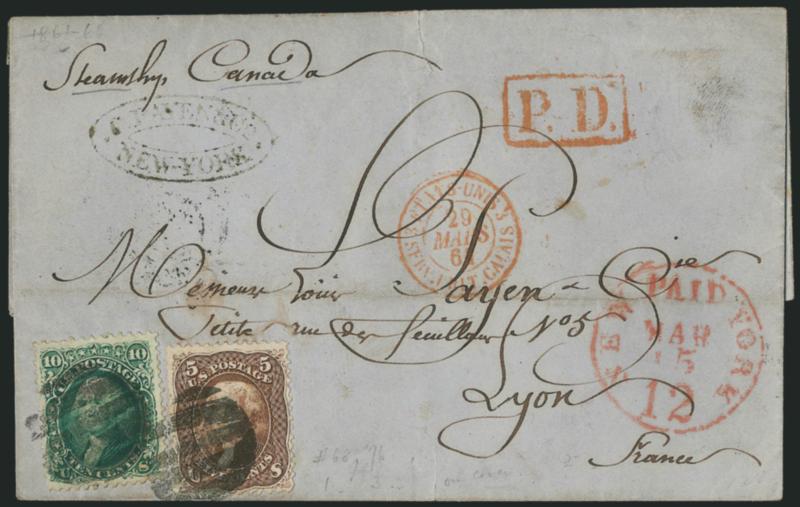 1861-66
Steamship Canada
NEW-YORK
P. D.
ETATS-UNIS
29
MARS
CALAIS
Monsieur Louis Payen & Cie
Petite rue des Feuillans No 5
Lyon
France
NEW PAID YORK
MAR
15
12
10 10
U.S. POSTAGE
TEN CENTS
U S
5 5
U.S. POSTAGE
CENTS
U S
#68, 76
on cover